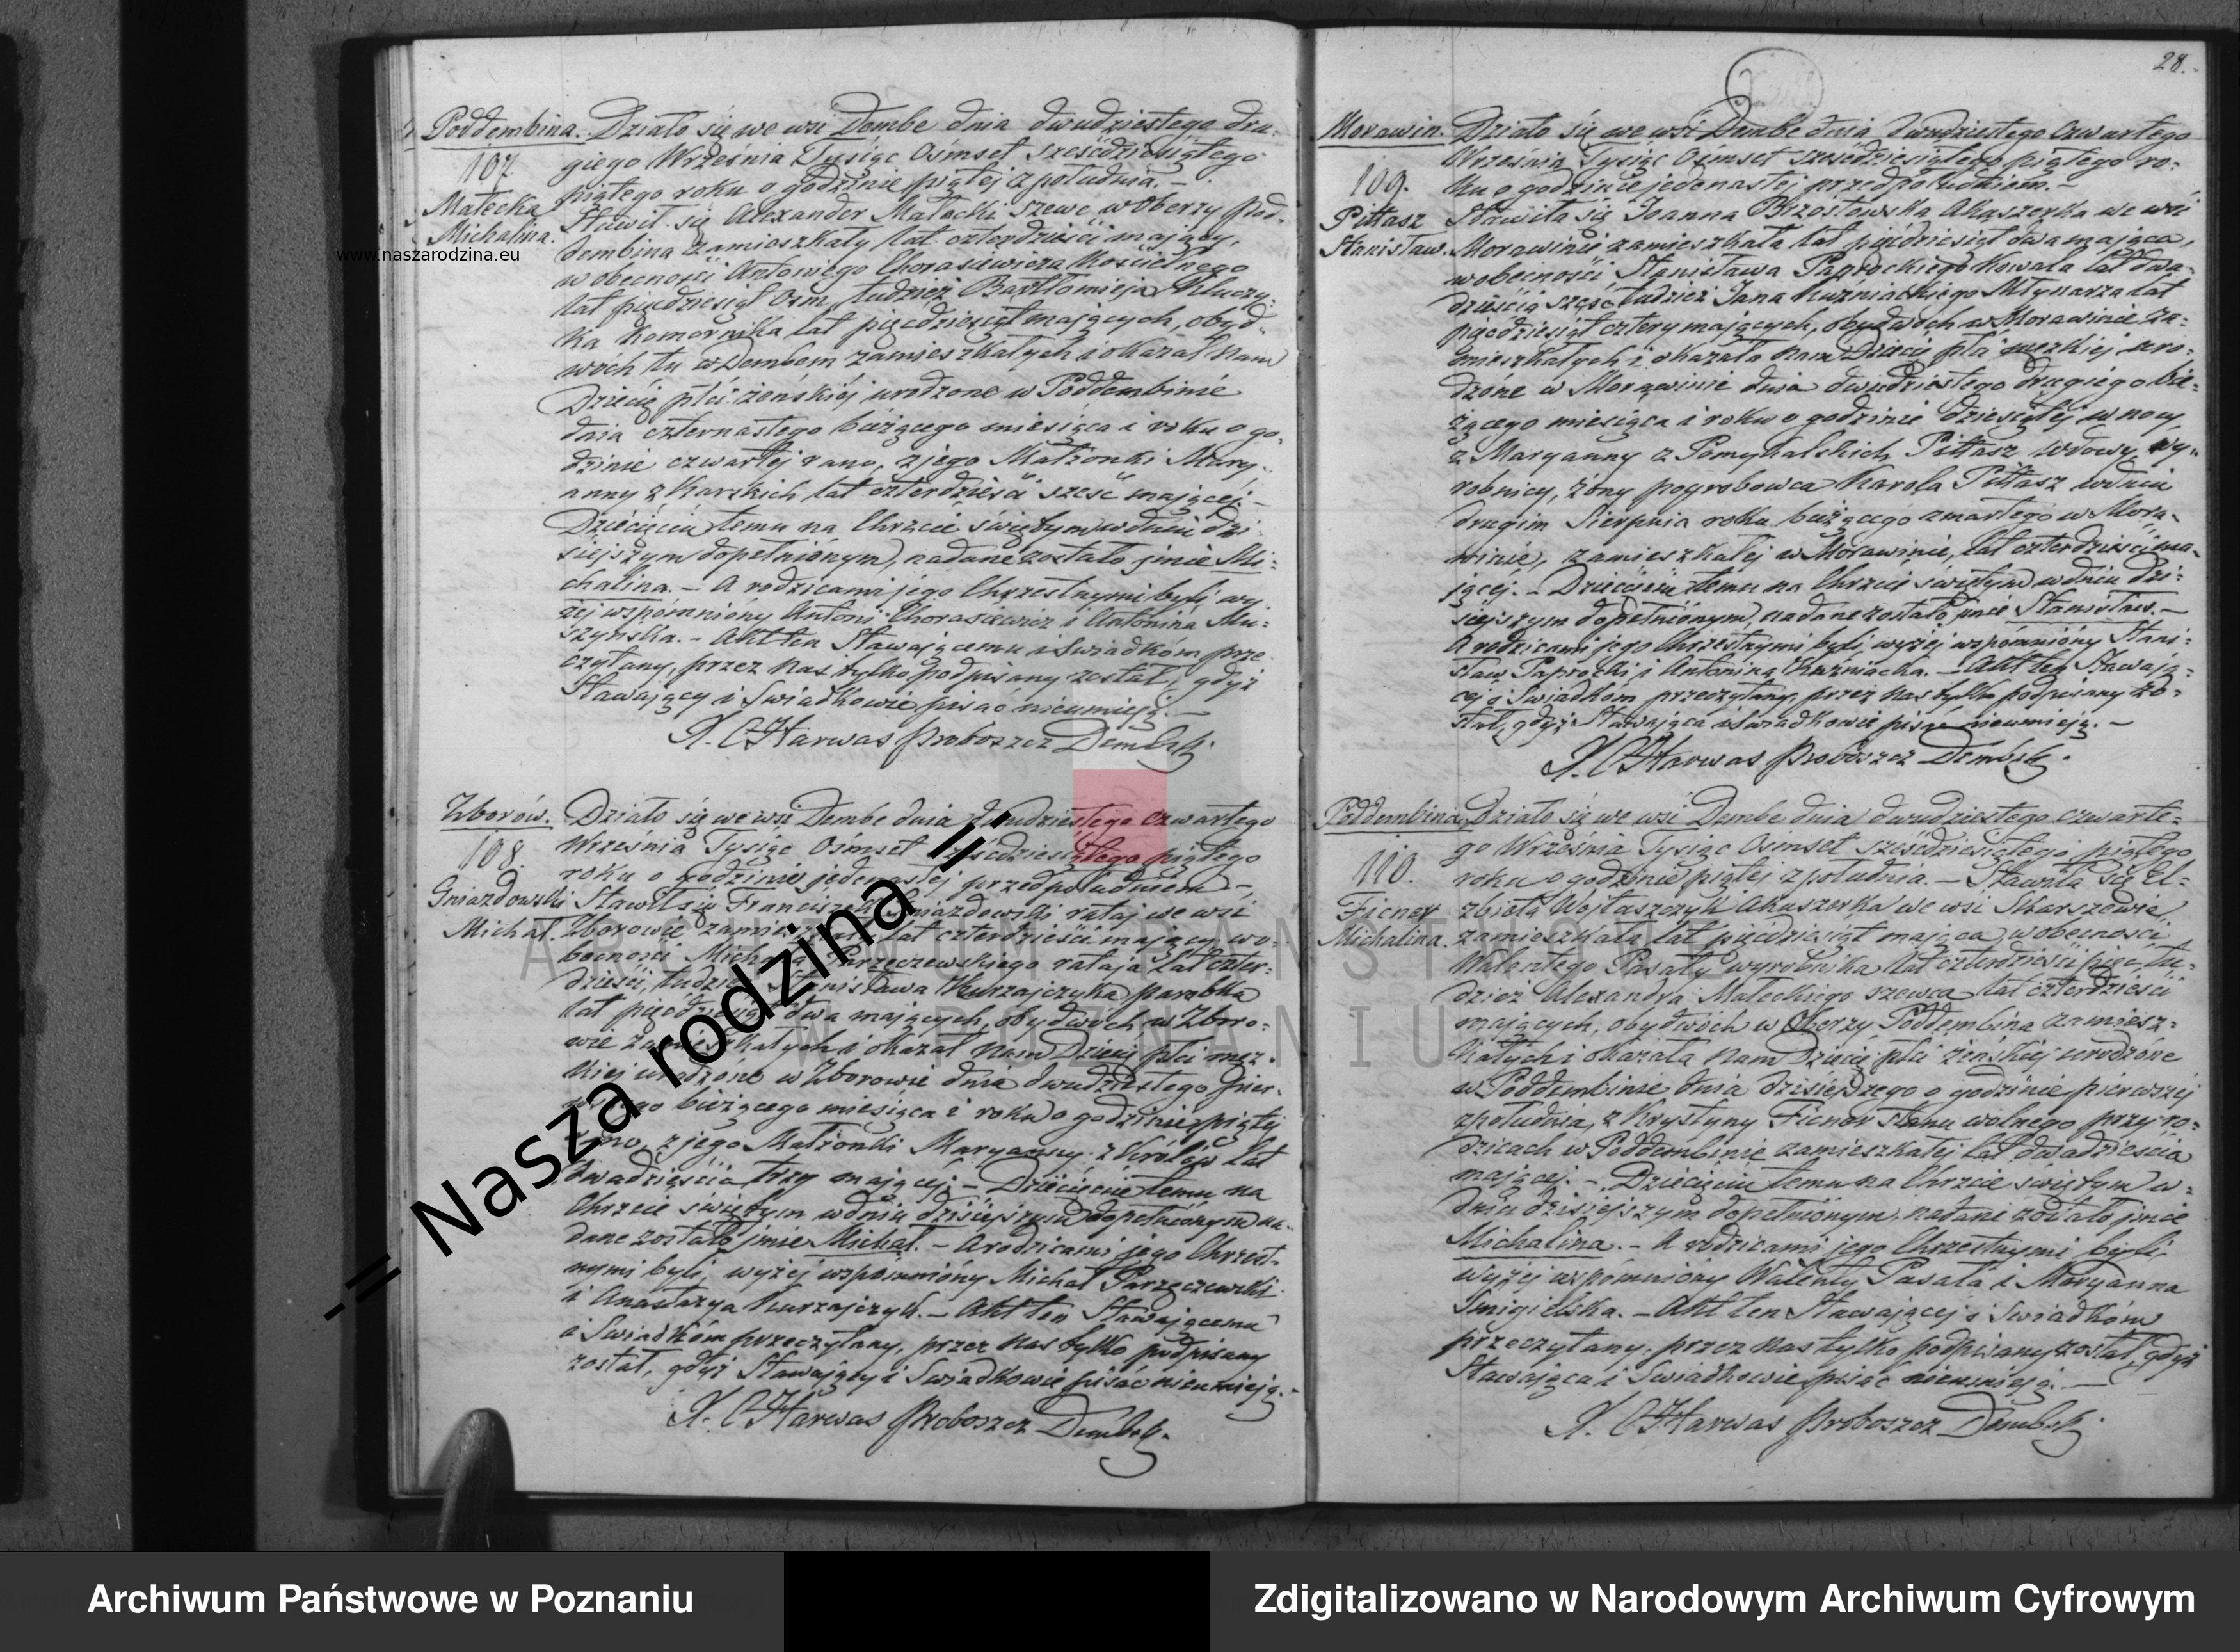 28.
Poddembina.
107.
Małecka
Michalina.
Działo się we wsi Dembe dnia dwudziestego dru-
giego Września Tysiąc Ośmset sześćdziesiątego
piątego roku o godzinie piątej z południa. –
Stawił się Alexander Małecki szewc w Oberzy Pod-
dembina zamieszkały lat czterdzieści mający,
w obecności Antoniego Chorasiewicza Kościelnego
lat pięćdziesiąt ośm, tudzież Bartłomieja Kluczy-
ka Komornika lat pięćdziesiąt mających, obyd-
wóch tu w Dembem zamieszkałych i okazał nam
Dziecię płci żeńskiéj urodzone w Poddembinie
dnia czternastego bieżącego miesiąca i roku o go-
dzinie czwartéj rano, z jego Małżonki Mary-
anny z Karskich lat czterdzieści sześć mającéj. –
Dziecięciu temu na Chrzcie świętym w dniu dzi-
siejszym dopełnionym, nadane zostało jmie Mi-
chalina. – A rodzicami jego Chrzestnymi byli wy-
żej wspomniony Antoni Chorasiewicz i Antonina Mu-
szyńska. – Akt ten Stawającemu i Swiadkóm prze-
czytany, przez nas tylko podpisany został, gdyż
Stawający i Swiadkowie pisać nieumieją. –
X. C Harwas Proboszcz Dembsk.
Zborów.
108.
Gniazdowski
Michał.
Działo się we wsi Dembe dnia dwudziestego czwartego
Września Tysiąc Ośmset sześćdziesiątego piątego
roku o godzinie jedenastej przed południem –
Stawił się Franciszek Gniazdowski rataj we wsi
Zborowie zamieszkały lat czterdzieści mający, wo-
becności Michała Parzęczewskiego rataja lat czter-
dzieści, tudzież Stanisława Kurzajczyka parobka
lat pięćdziesiąt dwa mających, obydwóch w Zboro-
wie zamieszkałych i okazał nam Dziecię płci męz-
kiej urodzone w Zborowie dnia dwudziestego pier-
wszego bieżącego miesiąca i roku o godzinie piątéj
rano, z jego Małżonki Maryanny z Królów lat
dwadzieścia trzy mającéj. – Dziecięciu temu na
Chrzcie świętym w dniu dzisiejszym dopełnionym na-
dane zostało jmie Michał. – A rodzicami jego Chrzest-
nymi byli, wyżej wspomniony Michał Parzęczewski
i Anastazya Kurzajczyk. – Akt ten Stawającemu
i Swiadkóm przeczytany, przez nas tylko podpisany
został, gdyż Stawający i Swiadkowie pisać nieumieją. –
X. C Harwas Proboszcz Dembsk.
Morawin.
109.
Pittasz
Stanisław.
Działo się we wsi Dembe dnia dwudziestego czwartego
Września Tysiąc Ośmset sześćdziesiątego piątego ro-
ku o godzinie jedenastej przed południem. –
Stawiła się Joanna Brzostowska Akuszerka we wsi
Morawinie zamieszkała lat pięćdziesiąt dwa mająca,
w obecności Stanisława Paprockiego Kowala lat dwa-
dzieścia sześć tudzież Jana Kuźniackiego Młynarza lat
pięćdziesiąt cztery mających, obydwóch w Morawinie za-
mieszkałych i okazała nam Dziecię płci męzkiej uro-
dzone w Morawinie dnia dwudziestego drugiego bie-
żącego miesiąca i roku o godzinie dziesiątéj w nocy
z Maryanny z Pomykalskich Pittasz wdowy, wy-
robnicy, żony pogrobowca Karola Pittasz w dniu
drugim Sierpnia roku bieżącego zmarłego w Mora-
winie, zamieszkałej w Morawinie, lat czterdzieści ma-
jącéj. – Dziecięciu temu na Chrzcie świętym w dniu dzi-
siejszym dopełnionym, nadane zostało jmie Stanisław. –
A rodzicami jego Chrzestnymi byli, wyżej wspomniony Stani-
sław Paprocki i Antonina Kuźniacka. – Akt ten Stawają-
cej i Swiadkóm przeczytany, przez nas tylko podpisany zo-
stał, gdyż Stawająca i Swiadkowie pisać nieumieją. –
X. C Harwas Proboszcz Dembsk.
Poddembina.
110.
Ficner
Michalina.
Działo się we wsi Dembe dnia dwudziestego czwarte-
go Września Tysiąc Ośmset sześćdziesiątego piątego
roku o godzinie piątej z południa. – Stawiła się El-
zbieta Wojtaszczyk Akuszerka we wsi Skarszewie
zamieszkała lat pięćdziesiąt mająca, w obecności
Walentego Pasały wyrobnika lat czterdzieści pięć, tu-
dzież Alexandra Małeckiego szewca lat czterdzieści
mających, obydwóch w Oberzy Poddembina zamiesz-
kałych i okazała nam Dziecię płci żeńskiéj urodzone
w Poddembinie dnia dzisiejszego o godzinie pierwszéj
z południa, z Krystyny Ficner stanu wolnego przy ro-
dzicach w Poddembinie zamieszkałej lat dwadzieścia
mającéj. – Dziecięciu temu na Chrzcie świętym w
dniu dzisiejszym dopełnionym, nadane zostało jmie
Michalina. – A rodzicami jego Chrzestnymi byli
wyżej wspomniony Walenty Pasała i Maryanna
Śmigielska. – Akt ten Stawającéj i Swiadkóm
przeczytany, przez nas tylko podpisany został, gdyż
Stawająca i Swiadkowie pisać nieumieją. –
X. C Harwas Proboszcz Dembsk.
www.naszarodzina.eu
-= Nasza rodzina =-
ARCHIWUM PAŃSTWOWE
W POZNANIU
Archiwum Państwowe w Poznaniu
Zdigitalizowano w Narodowym Archiwum Cyfrowym